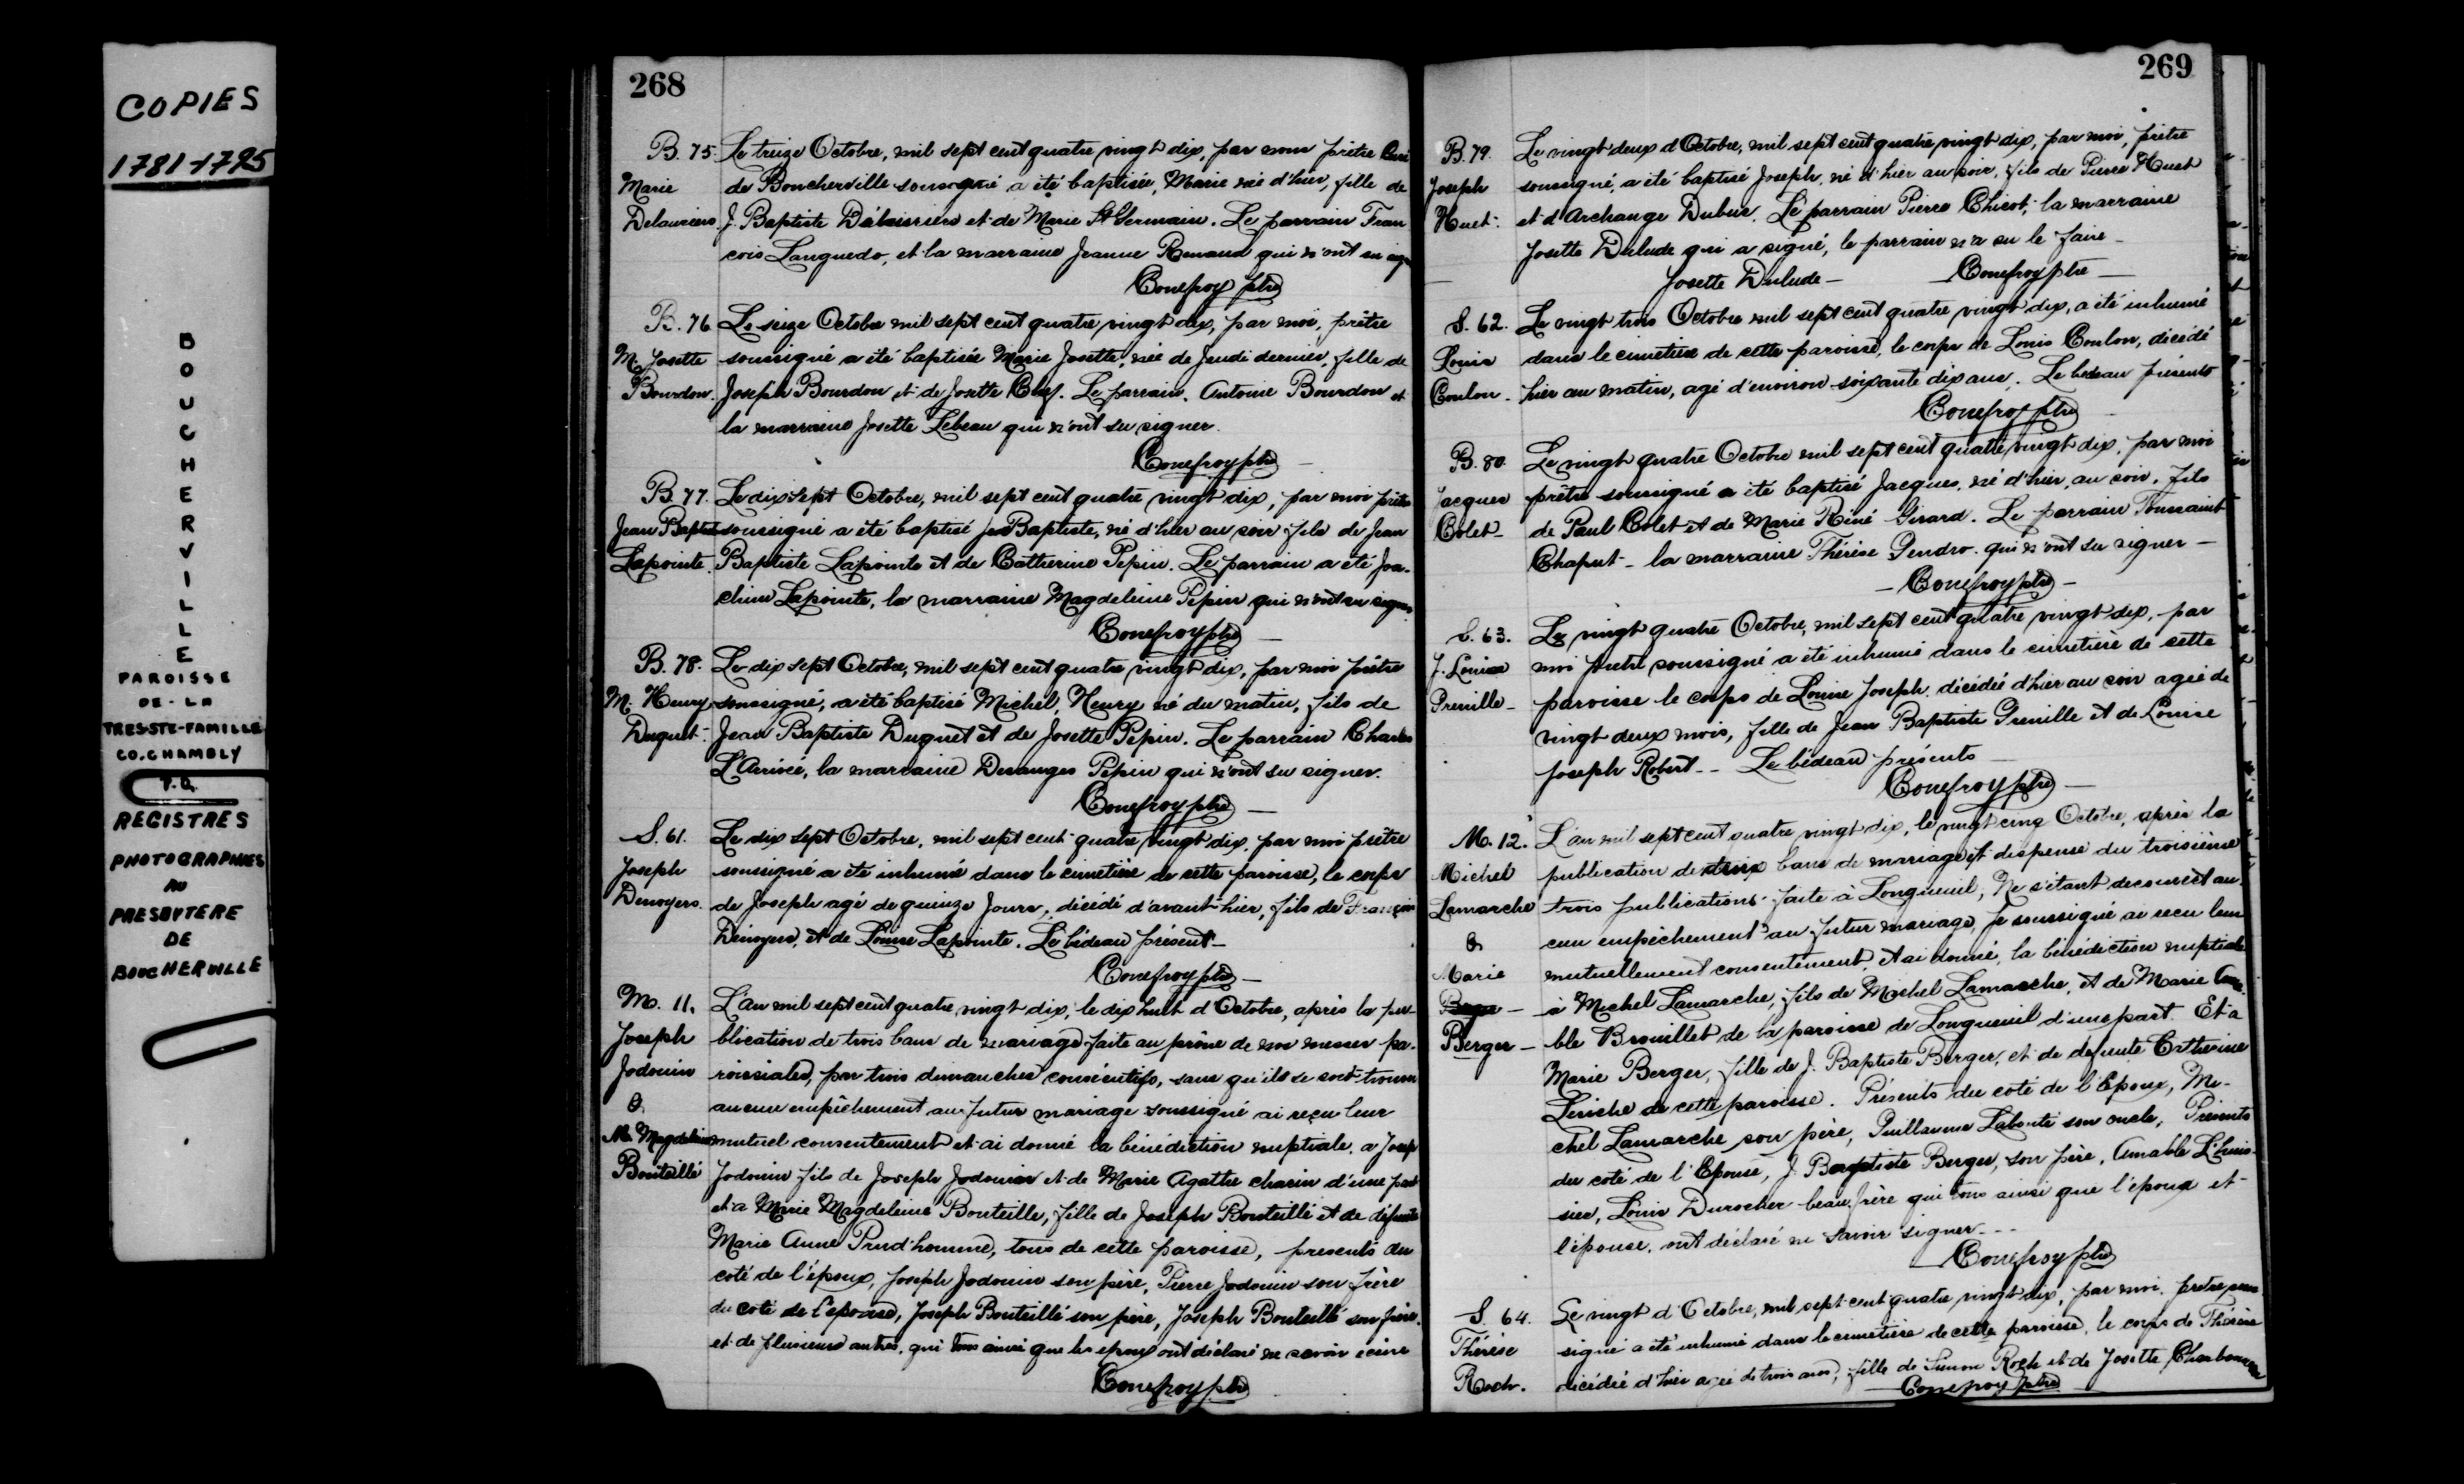 COPIES
1781-1795
BOUCHERVILLE
PAROISSE
DE-LA
TRES-STE-FAMILLE
CO. CHAMBLY
P.Q.
REGISTRES
PHOTOGRAPHIES
AU
PRESBYTERE
DE
BOUCHERVILLE
268
B. 75. Le treize Octobre, mil sept cent quatre vingt dix, par nous prêtre Curé
Marie de Boucherville soussigné a été baptisée, Marie née d'hier, fille de
Delauriers. J. Baptiste Délauriers et de Marie St Germain. Le parrain Fran
cois Languedo, et la marraine Jeanne Renaud qui n'ont su
Conefroy ptre
B. 76 Le seize Octobre mil sept cent quatre vingt dix, par moi, prêtre
M. Josette soussigné a été baptisée Marie Josette, née de Jeudi dernier, fille de
Bourdon. Joseph Bourdon et de Josette. Le parrain. Antoine Bourdon et
la marraine Josette Lebeau qui n'ont su signer.
Conefroy ptre
B. 77. Le dix sept Octobre, mil sept cent quatre vingt dix, par moi prêtre
Jean Baptiste soussigné a été baptisé Jn Baptiste, né d'hier au soir fils de Jean
Lapointe. Baptiste Lapointe et de Catherine Pepin. Le parrain a été Joa-
chim Lapointe, la marraine Magdeleine Pepin qui n'ont su signer
Conefroy ptre
B. 78. Le dix sept Octobre, mil sept cent quatre vingt dix, par moi prêtre
M. Henry soussigné, a été baptisé Michel, Henry né du matin, fils de
Duquet- Jean Baptiste Duquet et de Josette Pepin. Le parrain Charles
L'Arivée, la marraine Desanges Pepin qui n'ont su signer.
Conefroy ptre
S. 61. Le dix sept Octobre, mil sept cent quatre vingt dix, par moi prêtre
Joseph soussigné a été inhumé dans le cimetière de cette paroisse, le corps
Denoyers. de Joseph agé de quinze Jours, décédé d'avant-hier, fils de François
Dénoyers, et de Louise Lapointe. Le bédeau présent-
Conefroy ptre
M. 11. L'an mil sept cent quatre vingt dix, le dix huit d'Octobre, après la pu-
Joseph blication de trois bans de mariage faite au prône de nos messes pa-
Jodouin roissiales, par trois dimanches consécutifs, sans qu'ils se soit trouvé
& aucune empêchement au futur mariage soussigné ai reçu leur
M. Magdeleine mutuel consentement et ai donné la bénédiction nuptiale. a Joseph
Bouteillé Jodouin fils de Joseph Jodouin et de Marie Agathe charin d'une part
et a Marie Magdeleine Bouteille, fille de Joseph Bouteillé et de défunte
Marie Anne Prud'homme, tous de cette paroisse, presents du
coté de l'époux, Joseph Jodouin son père, Pierre Jodouin son frère
du coté de l'épouse, Joseph Bouteillé son père, Joseph Bouteillé son frère
et de plusieurs autres, qui tous ainsi que les epoux ont déclaré ne savoir écrire
Conefroy ptre
269
B. 79. Le vingt deux d'Octobre, mil sept cent quatre vingt dix, par moi, prêtre
Joseph soussigné, a été baptisé Joseph, né d'hier au soir, fils de Pierre Huet
Huet- et d'Archange Dubuc. Le parrain Pierre Chicot, la marraine
Josette Dulude qui a signé, le parrain n'a su le faire-
Josette Dulude - Conefroy ptre -
S. 62. Le vingt trois Octobre mil sept cent quatre vingt dix, a été inhumé
Louis dans le cimetière de cette paroisse, le corps de Louis Coulon, décédé
Coulon - hier au matin, agé d'environ soixante dix ans. Le bédeau présents
Conefroy ptre
B. 80. Le vingt quatre Octobre mil sept cent quatre vingt dix, par moi
Jacques prêtre soussigné a été baptisé Jacques, né d'hier, au soir, fils
Colet- de Paul Colet et de Marie Riné Girard. Le parrain Toussaint
Chaput - la marraine Thérèse Gendro. qui n'ont su signer -
- Conefroy ptre -
S. 63. Le vingt quatre Octobre, mil sept cent quatre vingt dix, par
J. Louise moi prêtre soussigné a été inhumé dans le cimetière de cette
Preville - paroisse le corps de Louise Joseph. décédée d'hier au soir agée de
vingt deux mois, fille de Jean Baptiste Preville et de Louise
Joseph Robert - - Le bédeau présents -
Conefroy ptre -
M. 12. L'an mil sept cent quatre vingt dix, le vingt cinq Octobre, après la
Michel publication de deux bans de mariage et dispense du troisième
Lamarche trois publications faite à Longueuil, Ne s'étant decouvert au-
& cun empêchement au futur mariage, Je soussigné ai recu leur
Marie mutuellement consentement, et ai donné, la bénédiction nuptiale
- à Michel Lamarche, fils de Michel Lamarche, et de Marie
Berger - ble Brouillet de la paroisse de Longueuil d'une part. Et à
Marie Berger, fille de J. Baptiste Berger, et de defunte Catherine
Leriche de cette paroisse. Présents du coté de l'Epoux, Mi-
chel Lamarche son père, Guillaume Labonté son oncle, Présents
du coté de l'Epouse, J. Baptiste Berger, son père, Amable L'huis-
sier, Louis Durocher beau frère qui tous ainsi que l'époux et
l'épouse, ont déclaré ne savoir signer - - -
Conefroy ptre
S. 64. Le vingt d'Octobre, mil sept cent quatre vingt dix, par moi, prêtre sous
Thérèse signé a été inhumé dans le cimetière de cette paroisse, le corps de Thérèse
Roch. décédée d'hier agée de trois ans, fille de Simon Roch et de Josette Charbonneau
Conefroy ptre